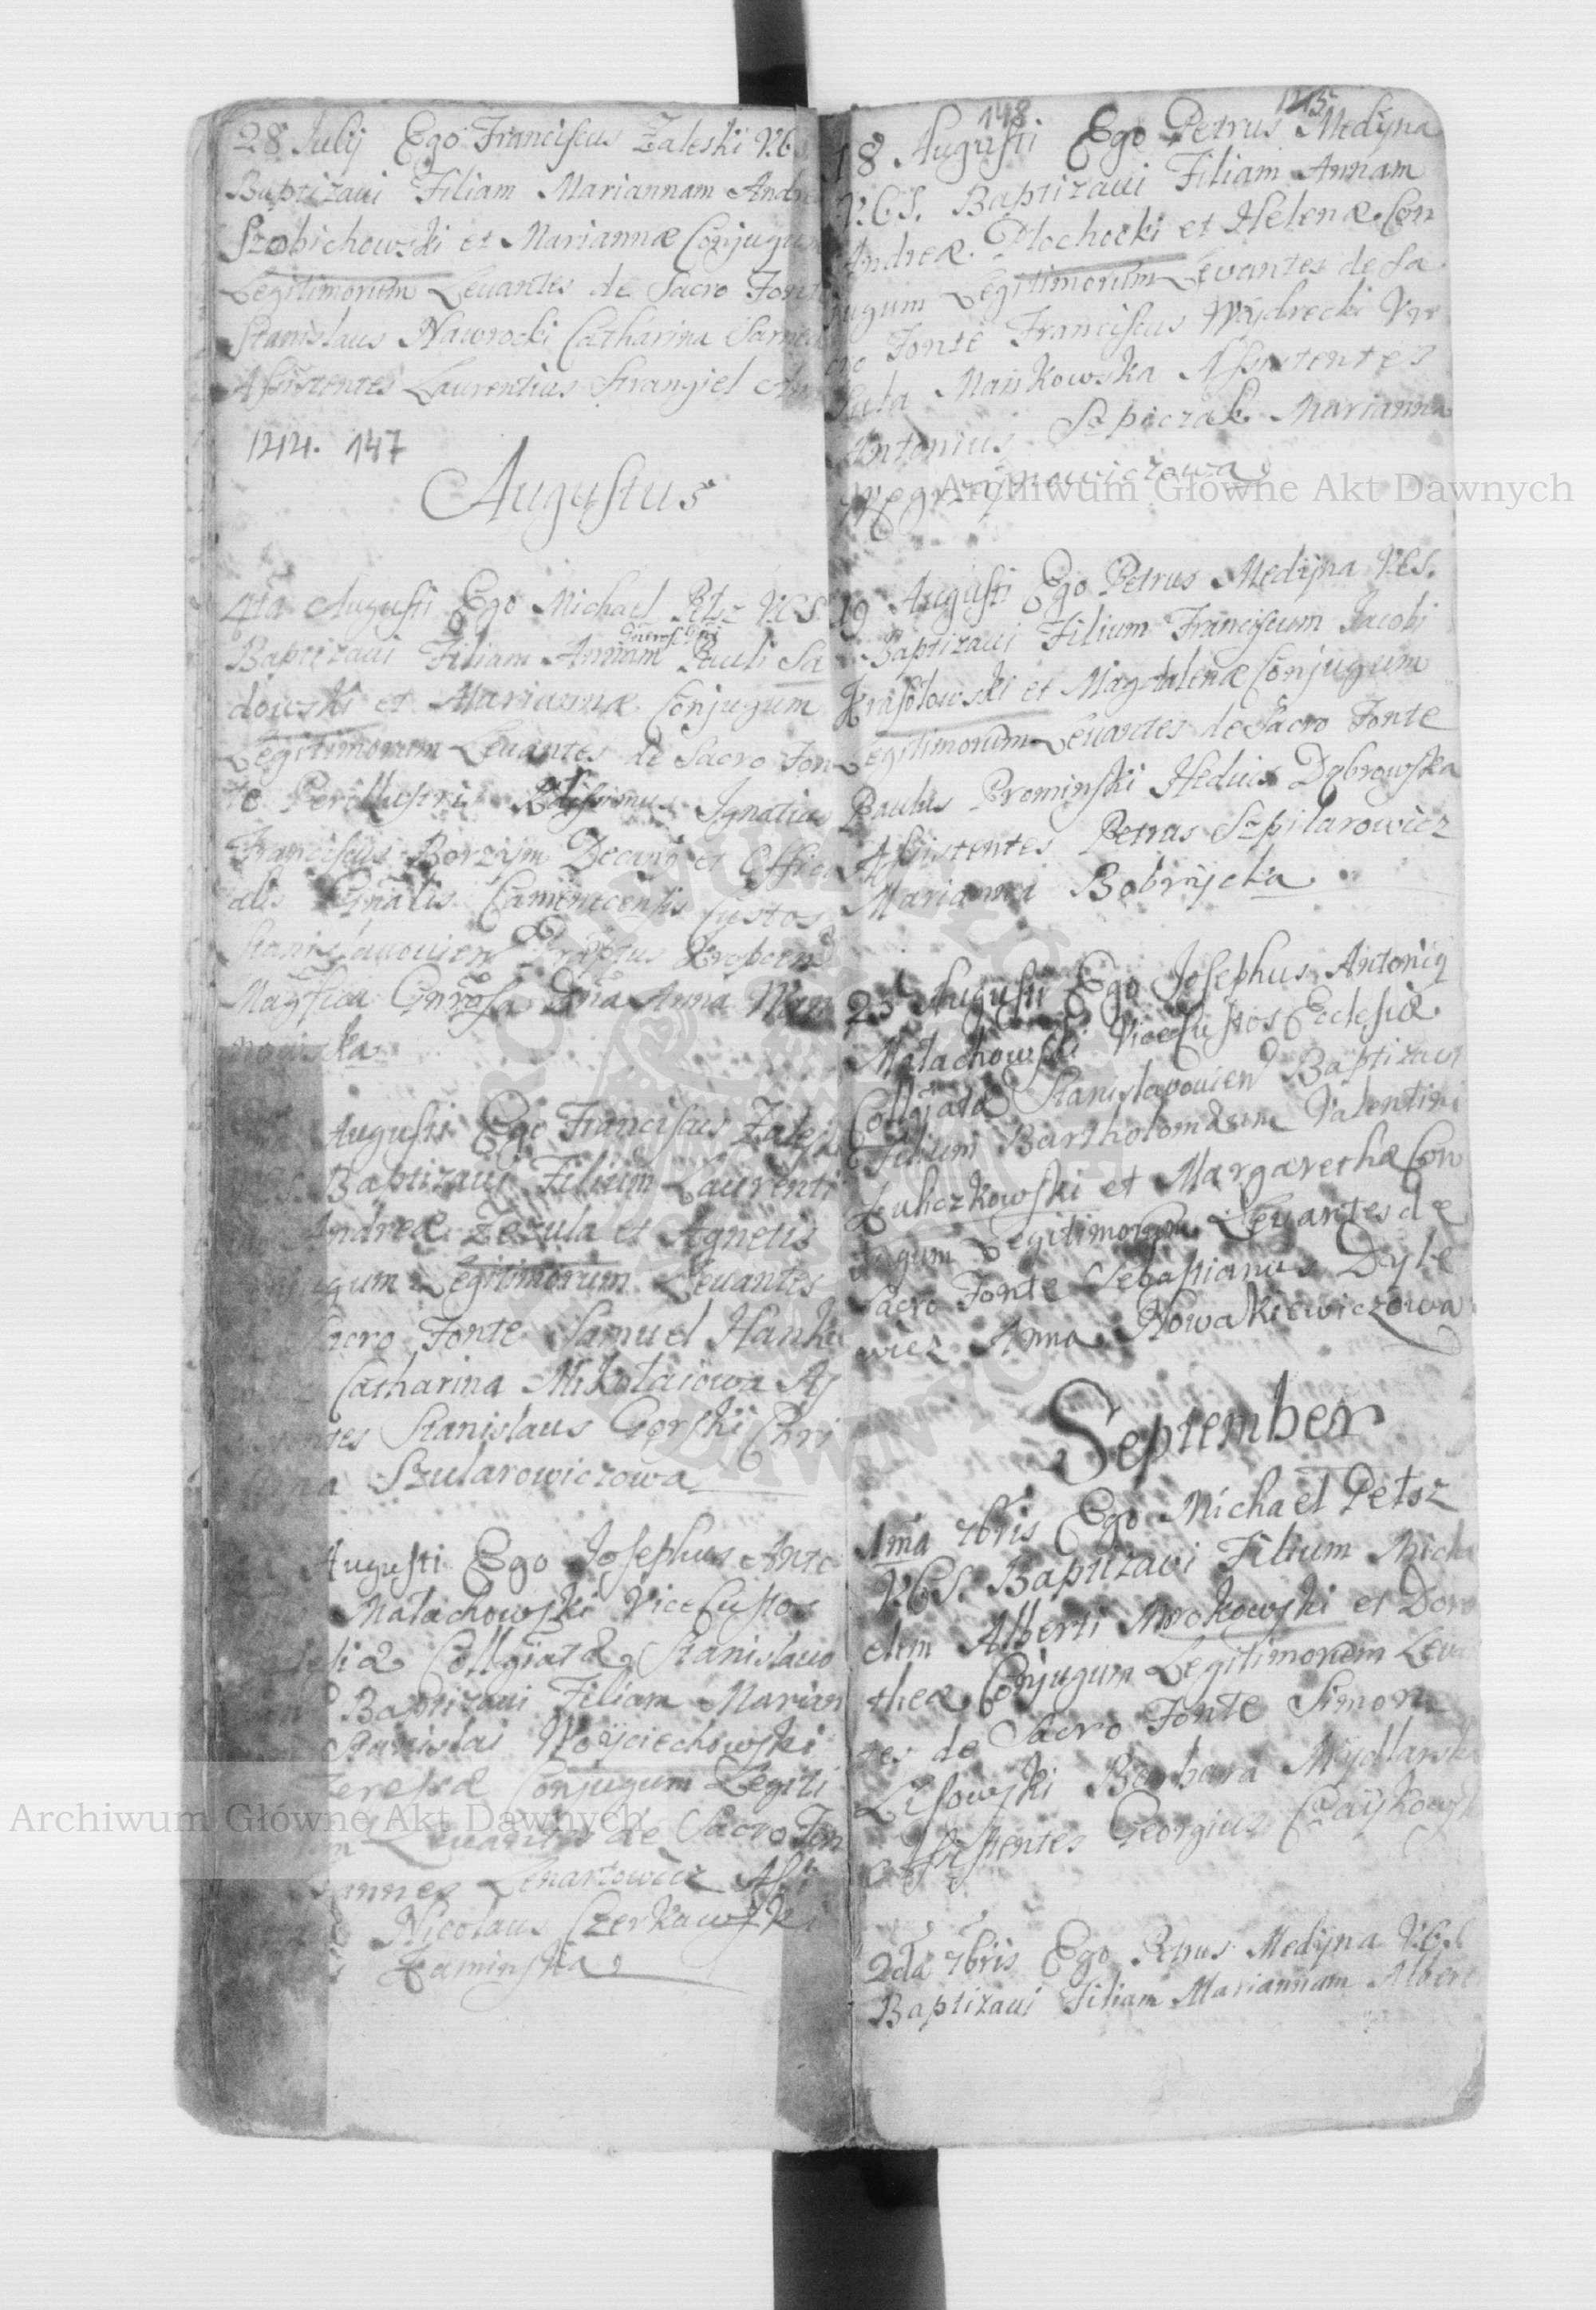 28 Julij Ego Franciscus Zaleski V.C.S.
Baptizaui Filiam Mariannam Andre
Szobichowski et Mariannæ Conjugum
Legitimorum Leuantes de Sacro Fonte
Stanislaus Nawrocki Catharina
Assistentes Laurentius Strangiel
144. 147
Augustus
4ta Augusti Ego Michael V.C.S.
Baptizaui Filiam Annam Pauli Sa
dowski et Mariannæ Conjugum
Legitimorum Leuantes de Sacro Fon
te Perillustris Ignatius
Franciscus Borzym Decan9 et Offici
alis Gnalis Camenecensis Custos
Stanislauouien
Anna
Augusti Ego Franciscus Zales
Baptizaui Filium Laurenti
Andreæ Zezula et Agnetis
gum Legitimorum Leuantes
acro Fonte Samuel Hanke
Catharina Mikołaiowa As
tes Stanislaus Gorski Chri
na Szularowiczowa
Augusti Ego Josephus Anto
Małachowski ViceCustos
esiæ Collgiatæ Stanislauo
Baptizaui Filiam Marian
Stanislai Woyciechowski
Teresæ Conjugum Legiti
m Leuantes de Sacro Fon
annes Lenartowicz Assi
Nicolaus Czerkawski
Kaminska
148 145
18 Augusti Ego Petrus Medyna
V.C.S. Baptizaui Filiam Annam
Andreæ Płochocki et Helenæ Con
jugum Legitimorum Leuantes de Sa
cro Fonte Franciscus Wądrecki Vr
sula Mankowska Assistentes
Antonius Szpiczak Marianna
Węgrzynowiczowa
19 Augusti Ego Petrus Medyna V.C.S.
Baptizaui Filium Franciscum Jacobi
Krasołowski et Magdalenæ Conjugum
Legitimorum Leuantes de Sacro Fonte
Paulus Prominski Heduig Dąbrowska
Assistentes Petrus Szpilarowicz
Marianna Bobrycka
25 Augusti Ego Josephus Antoni9
Małachowski ViceCustos Ecclesiæ
Collgiatæ Stanislauouien Baptizaui
Filium Bartholomæum Valentini
Łuhczkowski et Margarethæ Con
jugum Legitimorum Leuantes de
Sacro Fonte Sebastianus Dyle
wicz Anna Nowakiewiczowa
September
1ma 7bris Ego Michael Pełsz
V.C.S. Baptizaui Filium Micha
elem Alberti Mrokowski et Doro
theæ Conjugum Legitimorum Leuan
tes de Sacro Fonte Simon
Lisowski Barbara Mydlarska
Assistentes Georgius Czaykowsk
2da 7bris Ego Petrus Medyna V.C.S.
Baptizaui Filiam Mariannam Albert
Archiwum Główne Akt Dawnych
Archiwum Główne Akt Dawnych